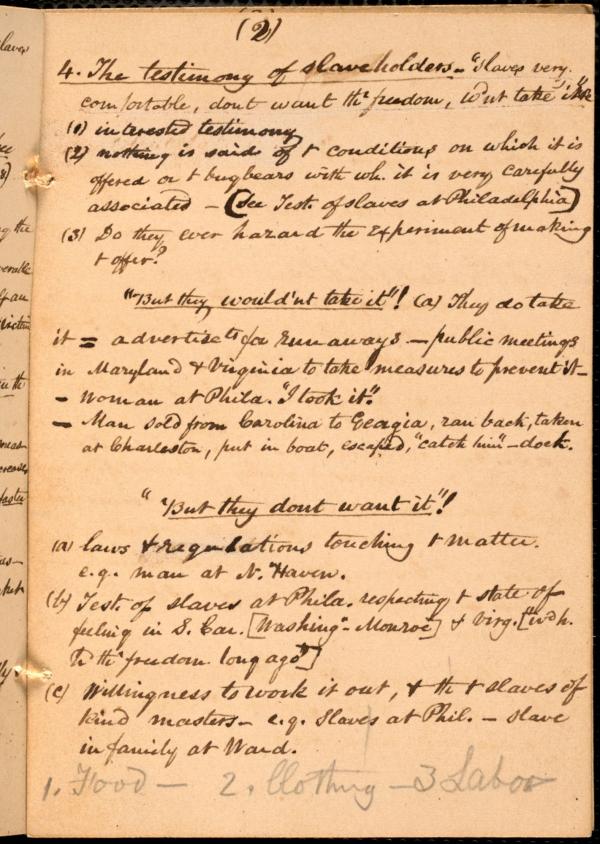 (2)
4. The testimony of slaveholders – "Slaves very
comfortable, dont want th' freedom, wd'nt take
(1) interested testimony
(2) nothing is said of t conditions on which it is
offered or t bugbears with wh. it is very carefully
associated – (see Test. of slaves at Philadelphia)
(3) Do they ever hazard the experiment of making
t offer?
"But they would'nt take it"! (a) They do take
it = advertisets for runaways – public meetings
in Maryland & Virginia to take measures to prevent it –
– Woman at Phila. "I took it".
– Man sold from Carolina to Georgia, ran back, taken
at Charleston, put in boat, escaped, "catch him" – dock.
"But they dont want it"!
(a) laws & regulations touching t matter.
e.g. man at N. Haven.
(b) Test. of slaves at Phila. respecting t state of
feeling in S. Car. [Washing'- Monroe] & Virg.
th' freedom long ago"]
(c) Willingness to work it out, & th t slaves of
kind masters – e.g. Slaves at Phil. – slave
in family at Ward.
1. Food – 2. Clothing – 3 Labor
slaver